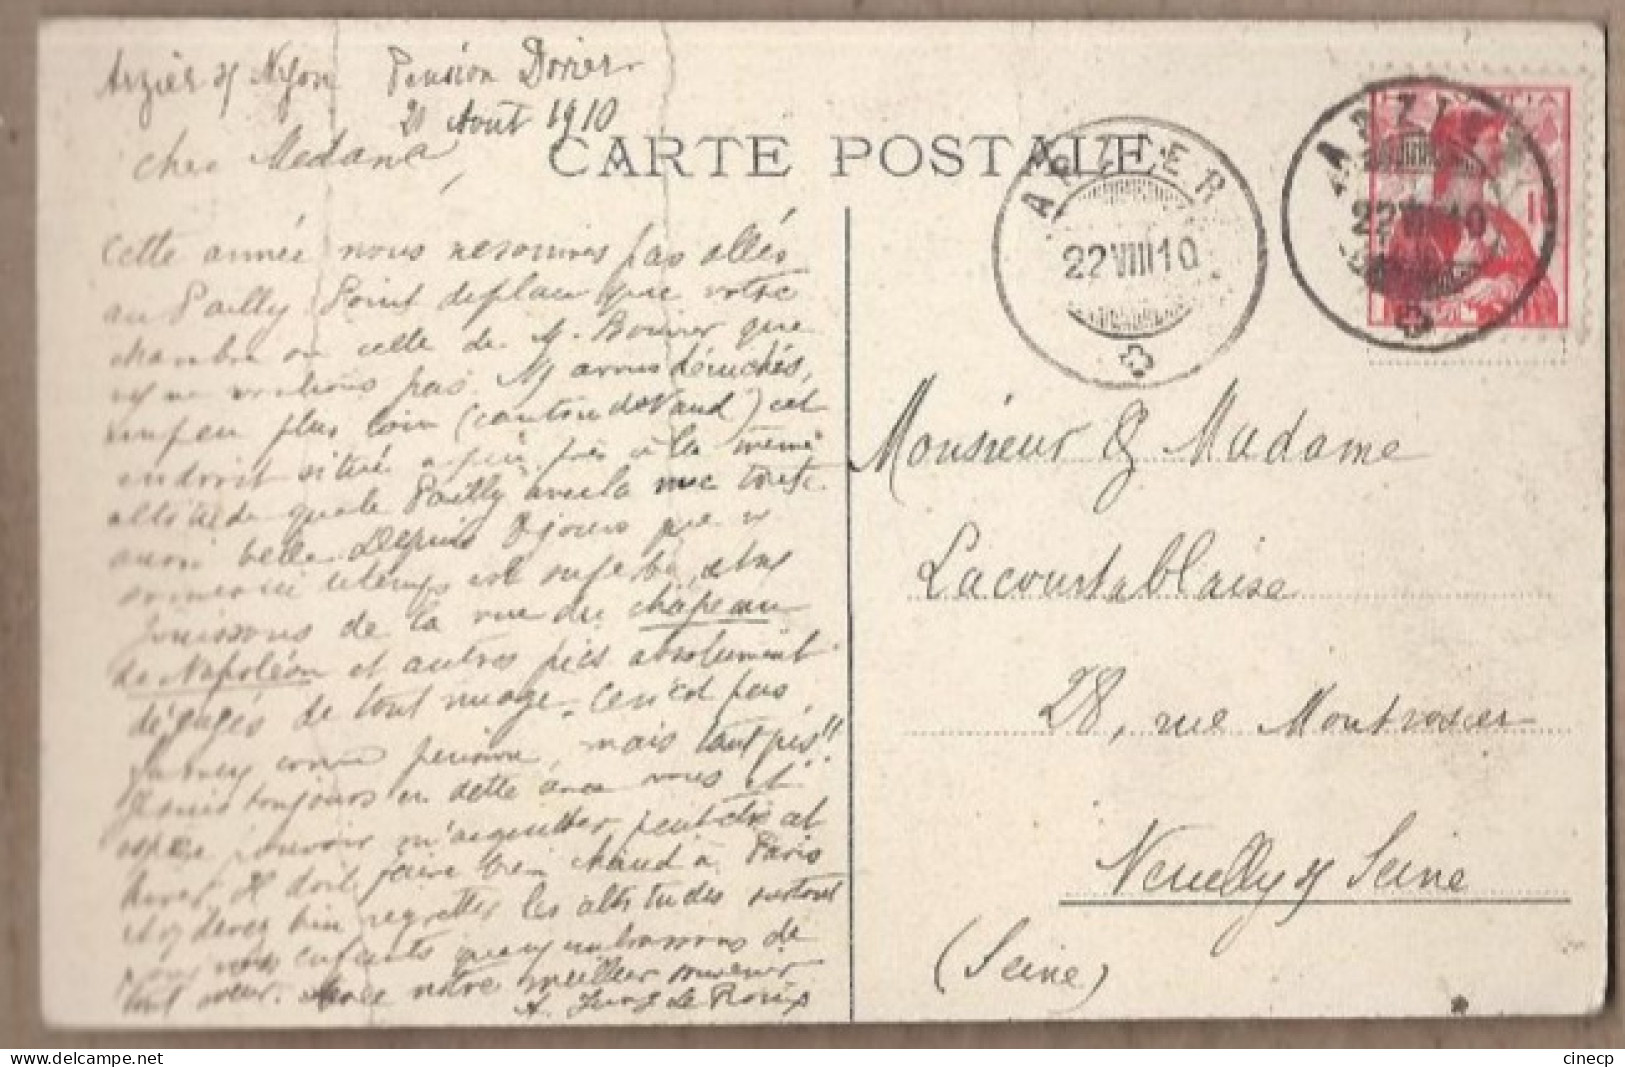 Arzier s/ Nyon Pension Dorier
21 Août 1910
CARTE POSTALE
Cher Madana,
Cette année nous ne sommes pas allés
au Pailly Point de place que votre
chambre ou celle de M. Bouvier que
ns ne voulions pas. Ns avons déniché,
un peu plus loin (canton de Vaud) cet
endroit situé à peu près à la même
altitude que le Pailly avec la vue toute
aussi belle. Depuis 8 jours que ns
sommes ici le temps est superbe, et ns
jouissons de la vue du chapeau
de Napoléon et autres pics absolument
dégagés de tout nuage. Ce n'est pas
comme pension, mais tant pis!!
Je suis toujours en dette avec vous et
espère pouvoir m'acquitter peut-être cet
hiver. Il doit faire bien chaud à Paris
et vs devez bien regretter les altitudes surtout
pour vos enfants que ns embrassons de
tout cœur. Avec notre meilleur souvenir
A. Le Roux
ARZIER
22 VIII 10
ARZIER
22 VIII 10
HELVETIA
Monsieur & Madame
Lacourtablaise
28, rue Montrosier
Neuilly s/ Seine
(Seine)
delcampe.net
cinecp